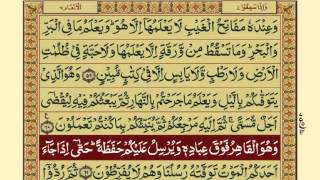 وَاِذَا سَمِعُوْا ۷ الْاَنْعَام ۶
وَعِنْدَهٗ مَفَاتِحُ الْغَيْبِ لَا يَعْلَمُهَاۤ اِلَّا هُوَ ؕ وَيَعْلَمُ مَا فِى الْبَرِّ
وَالْبَحْرِ ؕ وَمَا تَسْقُطُ مِنْ وَّرَقَةٍ اِلَّا يَعْلَمُهَا وَلَا حَبَّةٍ فِىْ ظُلُمٰتِ
الْاَرْضِ وَلَا رَطْبٍ وَّلَا يَابِسٍ اِلَّا فِىْ كِتٰبٍ مُّبِيْنٍ ۵۹ وَهُوَ الَّذِىْ
يَتَوَفّٰىكُمْ بِالَّيْلِ وَيَعْلَمُ مَا جَرَحْتُمْ بِالنَّهَارِ ثُمَّ يَبْعَثُكُمْ فِيْهِ لِيُقْضٰٓى
اَجَلٌ مُّسَمًّى ۚ ثُمَّ اِلَيْهِ مَرْجِعُكُمْ ثُمَّ يُنَبِّئُكُمْ بِمَا كُنْتُمْ تَعْمَلُوْنَ ۶۰
وَهُوَ الْقَاهِرُ فَوْقَ عِبَادِهٖ وَيُرْسِلُ عَلَيْكُمْ حَفَظَةً ؕ حَتّٰٓى اِذَا جَآءَ
اَحَدَكُمُ الْمَوْتُ تَوَفَّتْهُ رُسُلُنَا وَهُمْ لَا يُفَرِّطُوْنَ ۶۱ ثُمَّ رُدُّوْۤا